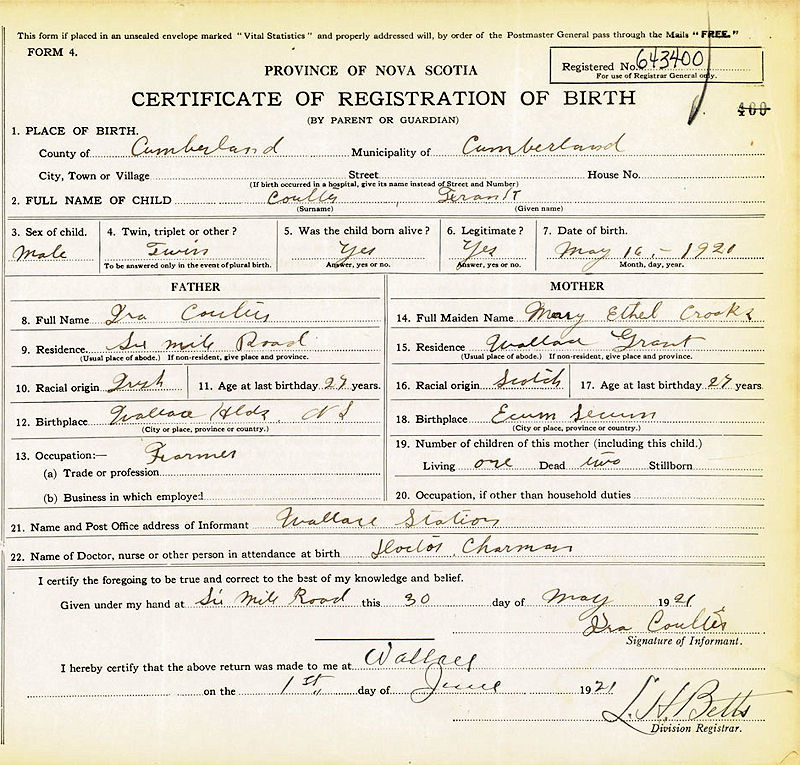 This form if placed in an unsealed envelope marked "Vital Statistics" and properly addressed will, by order of the Postmaster General pass through the Mails "FREE."
FORM 4.
Registered No. 643400
For use of Registrar General only.
PROVINCE OF NOVA SCOTIA
CERTIFICATE OF REGISTRATION OF BIRTH
400
(BY PARENT OR GUARDIAN)
1. PLACE OF BIRTH.
County of Cumberland Municipality of Cumberland
City, Town or Village Street House No.
(If birth occurred in a hospital, give its name instead of Street and Number)
2. FULL NAME OF CHILD Coulter
(Surname) (Given name)
3. Sex of child. 4. Twin, triplet or other? 5. Was the child born alive? 6. Legitimate? 7. Date of birth.
Male Twin Yes Yes May 16, - 1921
To be answered only in the event of plural birth. Answer, yes or no. Answer, yes or no. Month, day, year.
FATHER
8. Full Name Ira Coulter
9. Residence Six Mile Road
(Usual place of abode.) If non-resident, give place and province.
10. Racial origin Irish 11. Age at last birthday 27 years.
12. Birthplace Wallace NS
(City or place, province or country.)
13. Occupation:— Farmer
(a) Trade or profession
(b) Business in which employed
MOTHER
14. Full Maiden Name Mary Ethel Crooks
15. Residence Wallace Grant
(Usual place of abode.) If non-resident, give place and province.
16. Racial origin Scotch 17. Age at last birthday 27 years.
18. Birthplace
(City or place, province or country.)
19. Number of children of this mother (including this child.)
Living one Dead two Stillborn
20. Occupation, if other than household duties
21. Name and Post Office address of Informant Wallace Station
22. Name of Doctor, nurse or other person in attendance at birth Doctor Charman
I certify the foregoing to be true and correct to the best of my knowledge and belief.
Given under my hand at Six Mile Road this 30 day of May 1921
Ira Coulter
Signature of Informant.
I hereby certify that the above return was made to me at Wallace
on the 1st, day of June 1921
Betts
Division Registrar.